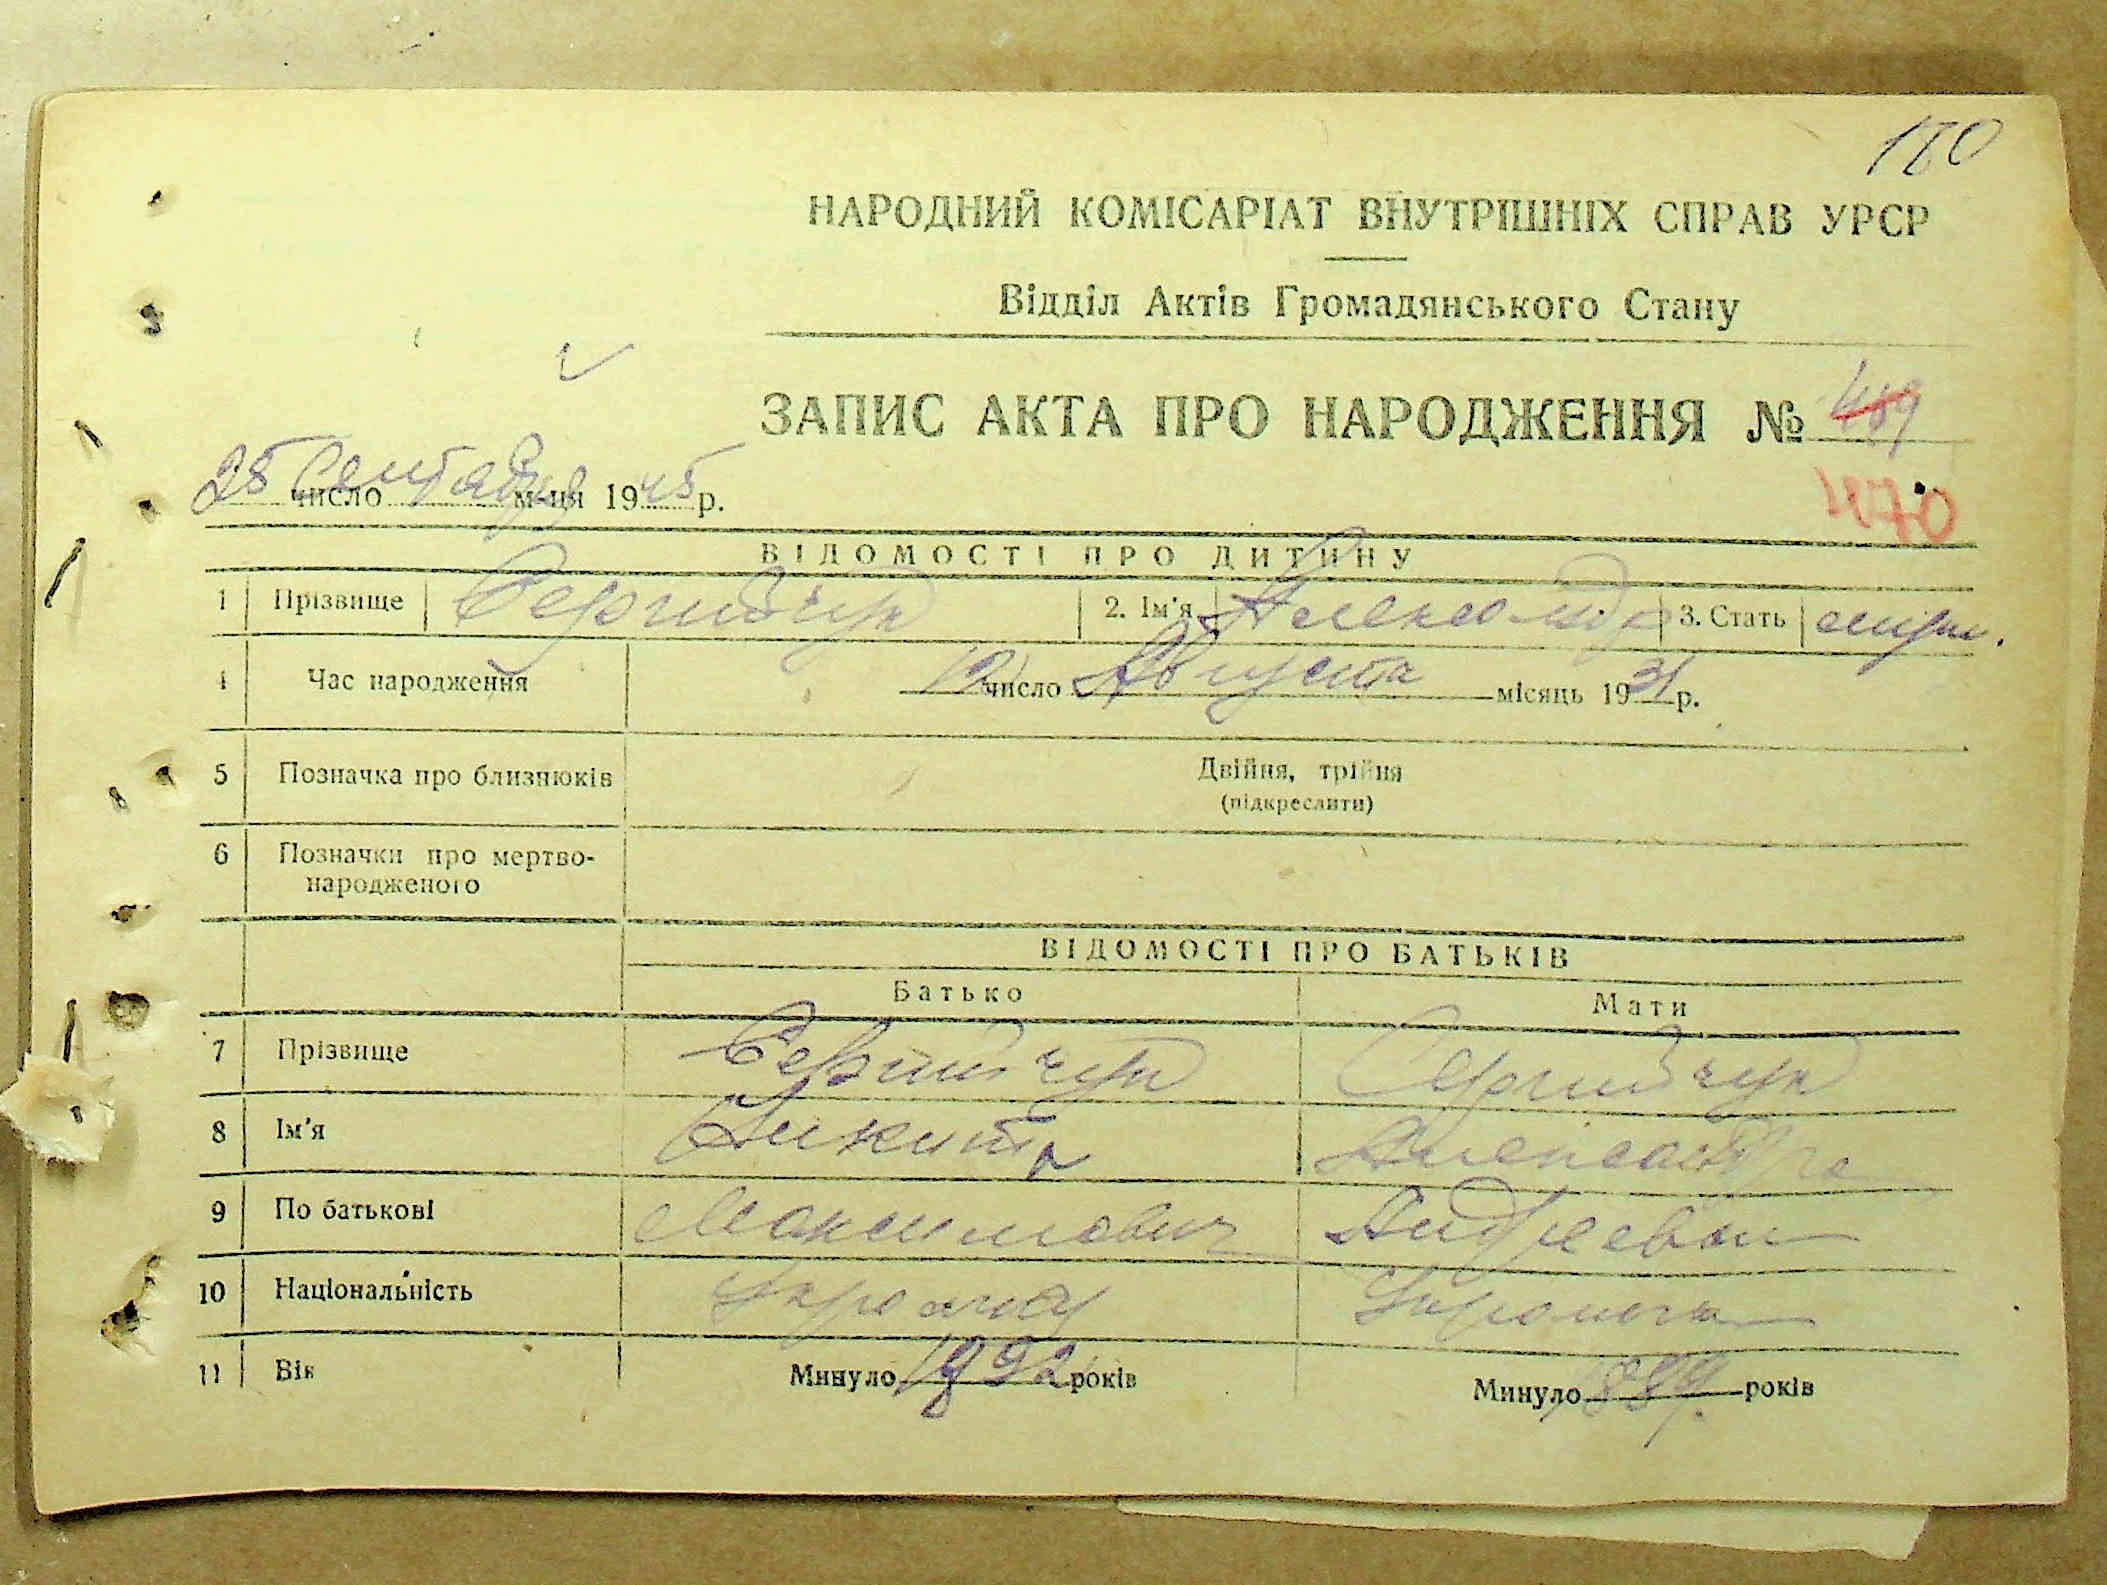 170
НАРОДНИЙ КОМІСАРІАТ ВНУТРІШНІХ СПРАВ УРСР
Відділ Актів Громадянського Стану
ЗАПИС АКТА ПРО НАРОДЖЕННЯ № 469
470
25 число Сентября м-ця 1945 р.
ВІДОМОСТІ ПРО ДИТИНУ
1 Прізвище Сергийчук 2. Ім'я Александр 3. Стать
4 Час народження 12 число Августа місяць 1931 р.
5 Позначка про близнюків Двійня, трійня
(підкреслити)
6 Позначки про мертво-
народженого
ВІДОМОСТІ ПРО БАТЬКІВ
Батько Мати
7 Прізвище Сергийчук Сергийчук
8 Ім'я Никита Александра
9 По батькові Максимович Андреевна
10 Національність Украинец Украинка
11 Вік Минуло 1892 років Минуло 1889 років